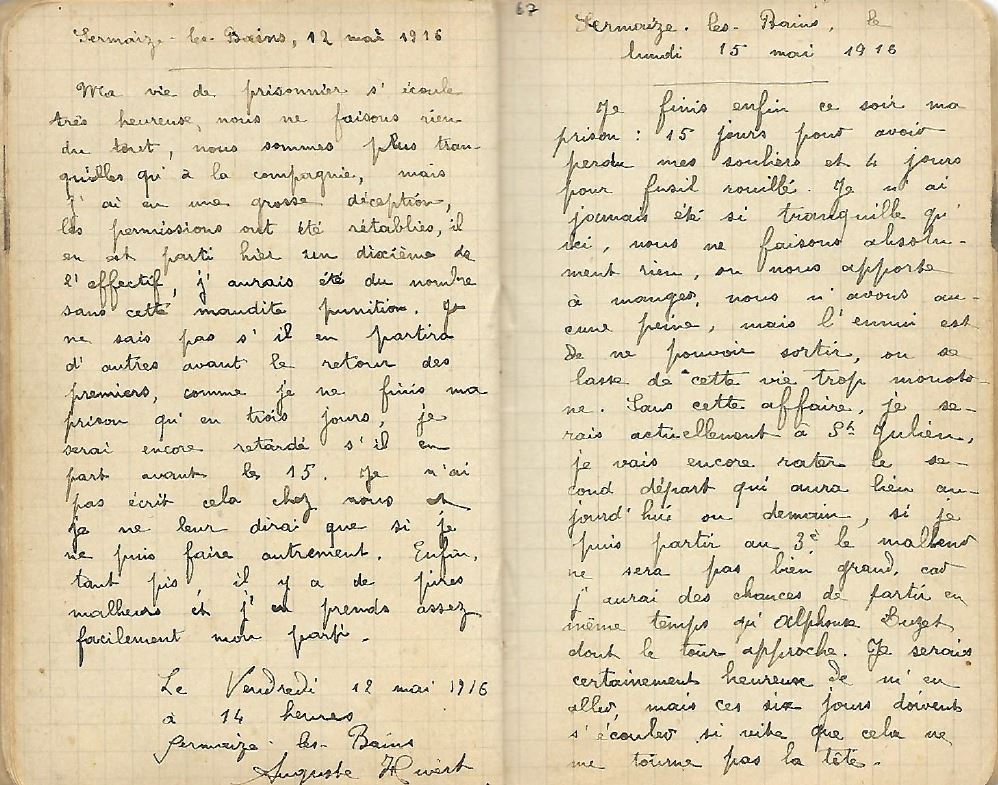 Sermaize-les-Bains, 12 mai 1916
Ma vie de prisonnier s'écoule
très heureuse, nous ne faisons rien
du tout, nous sommes plus tran-
quilles qu'à la compagnie, mais
j'ai eu une grosse déception,
les permissions ont été rétablies, il
en est parti hier un dixième de
l'effectif, j'aurais été du nombre
sans cette maudite punition. Je
ne sais pas s'il en partira
d'autres avant le retour des
premiers, comme je ne finis ma
prison qu'en trois jours, je
serai encore retardé s'il en
part avant le 15. Je n'ai
pas écrit cela chez nous et
je ne leur dirai que si je
ne puis faire autrement. Enfin,
tant pis il y a de pires
malheurs et j'en prends assez
facilement mon parti.
Le Vendredi 12 mai 1916
à 14 heures
Sermaize-les-Bains
Auguste
67
Sermaize-les-Bains, le
lundi 15 mai 1916
Je finis enfin ce soir ma
prison : 15 jours pour avoir
perdu mes souliers et 4 jours
pour fusil rouillé. Je n'ai
jamais été si tranquille qu'
ici, nous ne faisons absolu-
ment rien, on nous apporte
à manger, nous n'avons au-
cune peine, mais l'ennui est
de ne pouvoir sortir, on se
lasse de cette vie trop monoto-
ne. Sans cette affaire, je se-
rais actuellement à St Julien,
je vais encore rater le se-
cond départ qui aura lieu au-
jourd'hui ou demain, si je
puis partir au 3e le malheur
ne sera pas bien grand, car
j'aurai des chances de partir en
même temps qu'Alphonse Buzet
dont le tour approche. Je serais
certainement heureuse de m'en
aller, mais ces six jours doivent
s'écouler si vite que cela ne
me tourne pas la tête.